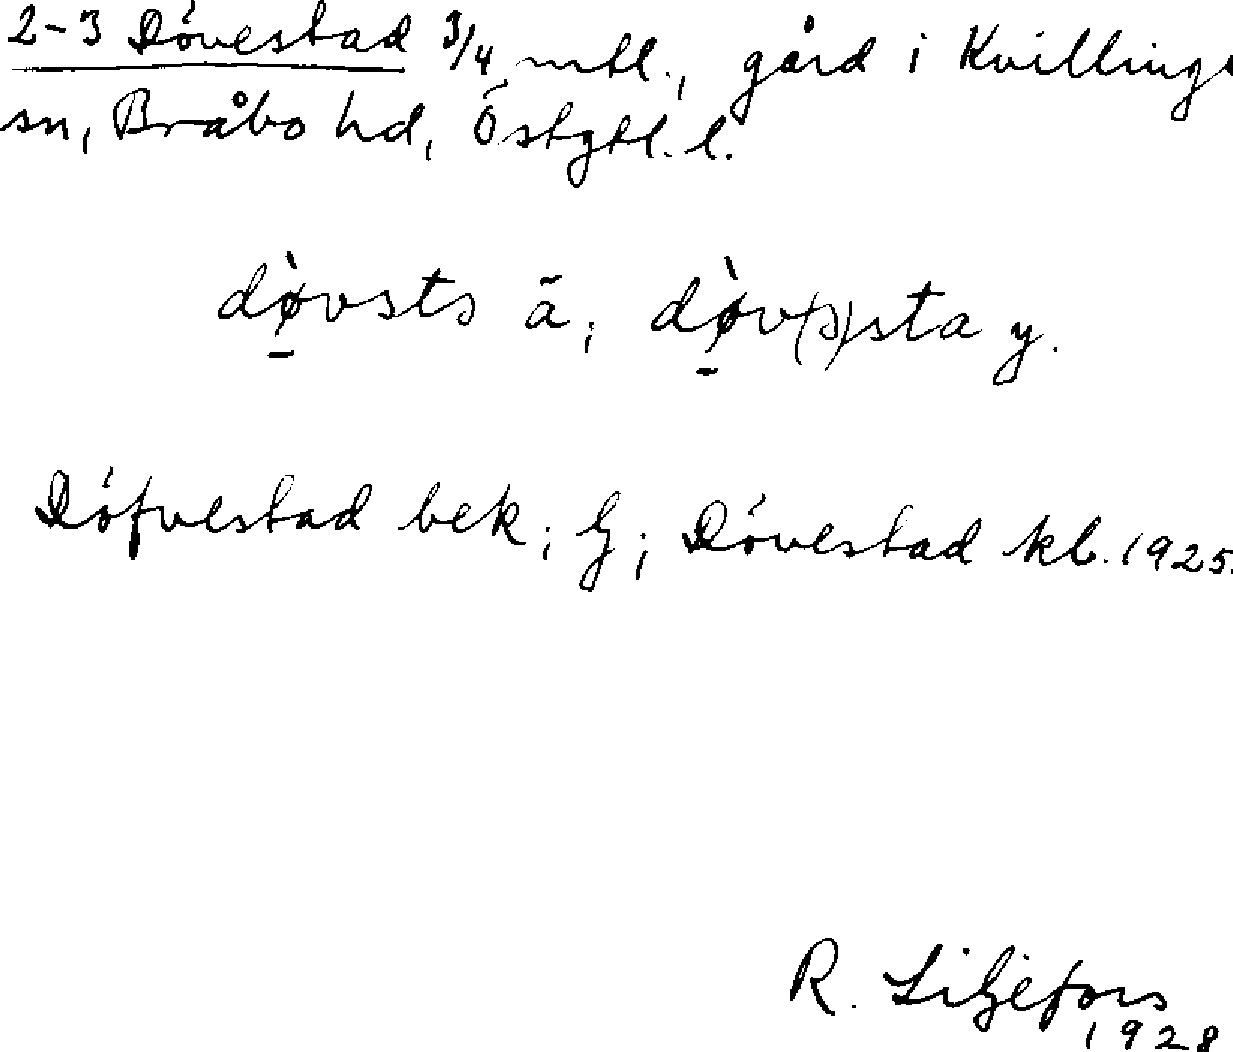 2-3 Dövestad 3/4 mtl., gård i Kvillinge
sn, Bråbo hd, Östgtl. l.
dø̀vstə ä, dø̀v(ə)sta y.
Döfvestad bek, G; Dövestad kb. 1925.
R. Liljefors
1928